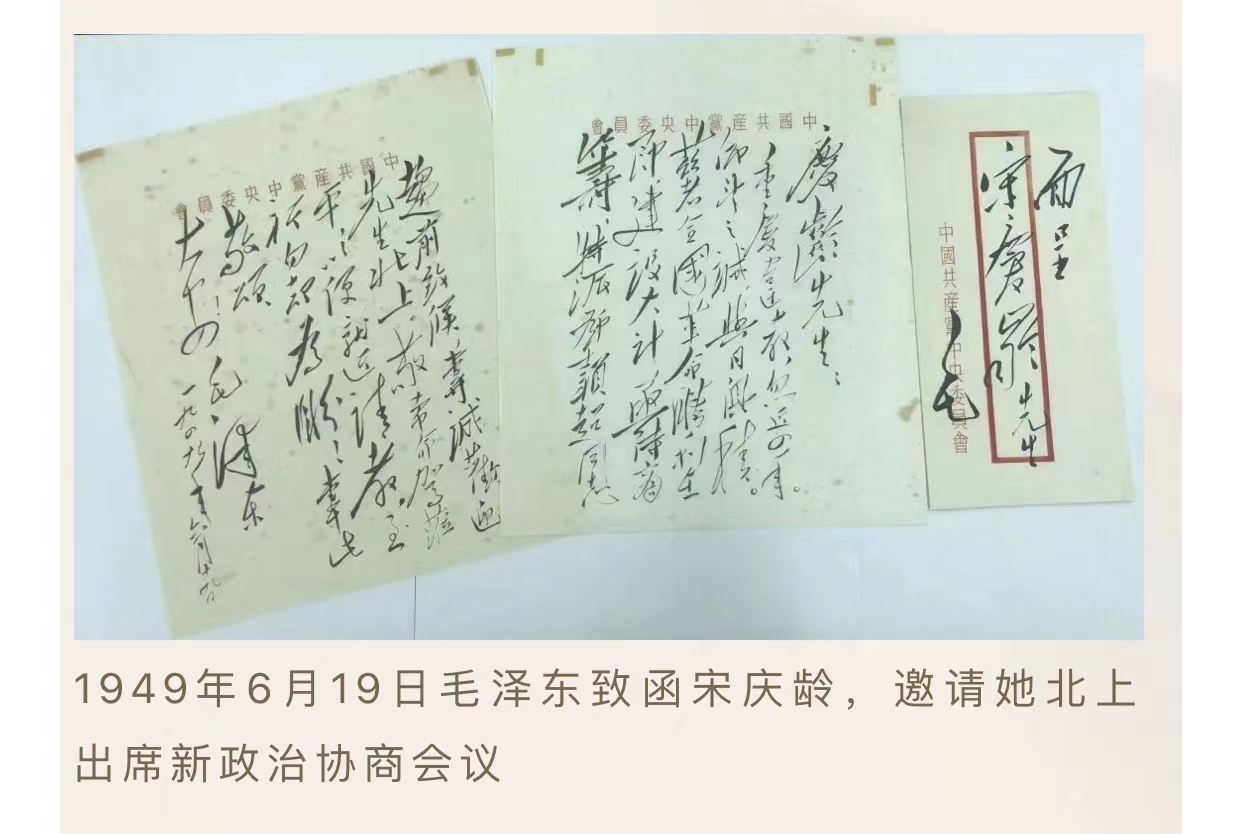 面呈
宋慶齡先生
毛
中國共産黨中央委員會
中國共産黨中央委員會
慶齡先生：
重慶違教，忽近四年。
仰望之誠，與日俱積。
茲者全國革命勝利在
即，建設大計，亟待商
籌，特派鄧穎超同志
中國共産黨中央委員會
趨前致候，專誠歡迎
先生北上。敬希命駕蒞
平，以便就近請教，至
祈勿却為盼！專此
敬頌
大安！
毛澤东
一九四九年六月十九日
1949年6月19日毛泽东致函宋庆龄，邀请她北上
出席新政治协商会议